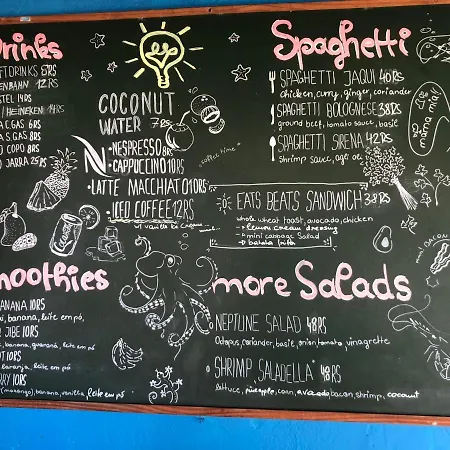 Drinks
FTDRINKS 5RS
ENBAHN 12RS
STEL 14RS
/ HEINEKEN 14RS
A C GAS 6RS
A S GAS 8RS
O COPO 8RS
O JARRA 25RS
COCONUT
WATER 7RS
NESPRESSO 8RS
CAPPUCCINO 10RS
LATTE MACCHIATO 10RS
ICED COFFEE 12RS
w/ vanille ice cream
coffee time
Spaghetti
SPAGHETTI JAQUI 40RS
chicken, curry, ginger, coriander
SPAGHETTI BOLOGNESE 38RS
ground beef, tomato sauce, basil
SPAGHETTI SIRENA 42RS
shrimp sauce, agli oli
mamma mia!!
EATS BEATS SANDWICH 38RS
whole wheat toast, avocado, chicken
lemon cream dressing
mini cabbage Salad
batata frita
BACON
moothies
ANANA 10RS
i, banana, leite em pó,
JIBE 10RS
banana, guaraná, leite em pó
OT 10RS
laranja, leite em pó
RRY 10RS
(morango), banana, vanilla, leite em pó
more Salads
NEPTUNE SALAD 48RS
Octopus, coriander, basil, onion, tomato, vinagrette
SHRIMP "SALADELLA" 48RS
lettuce, pineapple, corn, avocado, bacon, shrimp, coconut